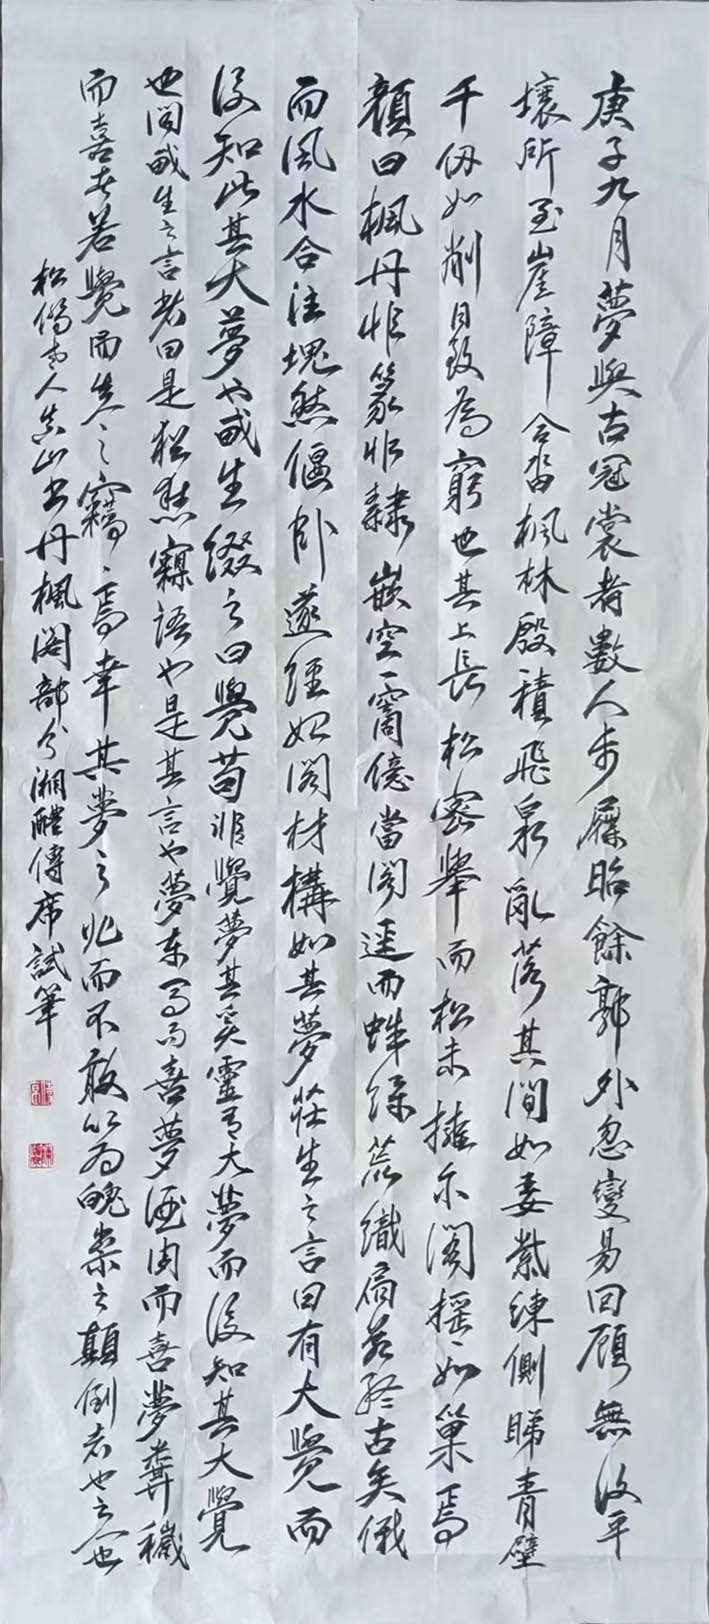 庚子九月夢與古冠裳者數人步屧昭餘郭外忽變易回顧無復平
壤所至崖障合沓楓林殷積飛泉亂落其間如委紫練側睇青壁
千仞如削目致為窮也其上長松密舉而松末擁尒閣搖〻如巢焉
顏曰楓丹非篆非隸嵌空一窩億當閣逕而蛛綠荒織扃若終古矣俄
而風水合注塊然偃卧遂經始閣材構如其夢莊生之言曰有大覺而
後知此其大夢也戓生綴之曰覺苟非覺夢其奚靈有大夢而後知其大覺
也問戓生之言者曰是猶愁寱語也是其言也夢東馬而喜夢酒肉而喜夢糞穢
而喜者若覺而失之竊〻焉幸其夢之兆而不敢以為醜祟之顛倒者也云也
松僑老人真山書丹楓閣部分湘醴傅席試筆